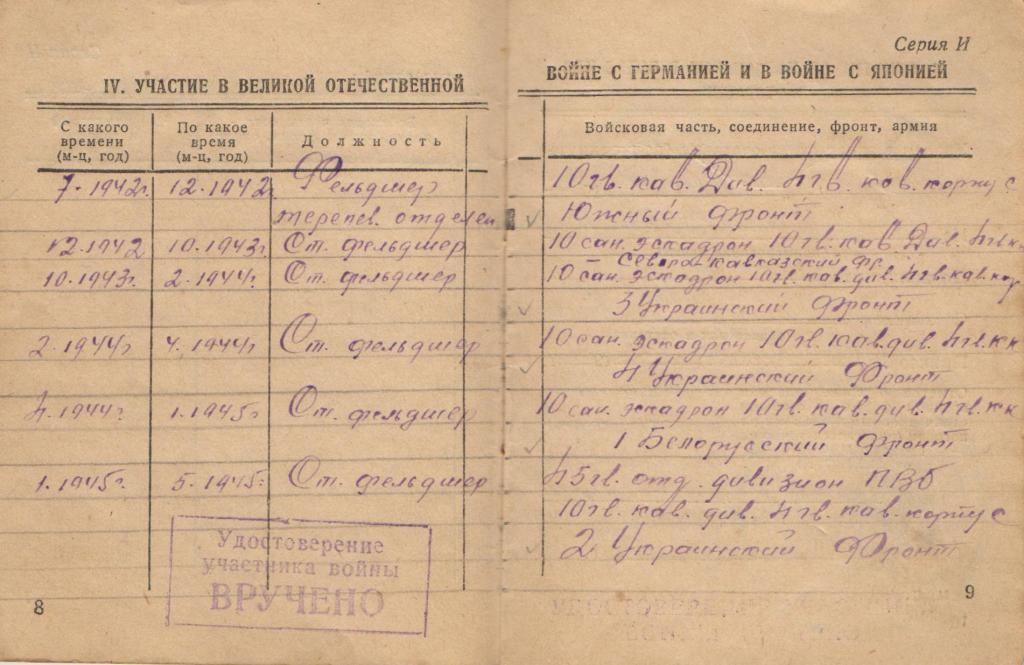 Серия И
IV. УЧАСТИЕ В ВЕЛИКОЙ ОТЕЧЕСТВЕННОЙ ВОЙНЕ С ГЕРМАНИЕЙ И В ВОЙНЕ С ЯПОНИЕЙ
С какого времени (м-ц, год) По какое время (м-ц, год) Должность Войсковая часть, соединение, фронт, армия
7-1942г. 12-1942 Фельдшер 10 гв. кав. Див. 4 гв. кав. корпус
терапев. отделен Южный фронт
12-1942 10-1943г. Ст. фельдшер 10 сан. эскадрон 10 гв. кав. Див. 4 гв. к
Северо Кавказский фр.
10-1943г. 2-1944г. Ст. фельдшер 10 сан. эскадрон 10 гв. кав. див. 4 гв. кав. кор
3 Украинский Фронт
2-1944г 4-1944г Ст. фельдшер 10 сан. эскадрон 10 гв. кав. див. 4 гв. кк
4 Украинский Фронт
4-1944г. 1-1945г Ст. фельдшер 10 сан. эскадрон 10 гв. кав. див. 4 гв. кк
1 Белорусский фронт
1-1945г. 5-1945г Ст. фельдшер 45 гв. отд. дивизион
10 гв. кав. див. 4 гв. кав. корпус
2 Украинский Фронт
Удостоверение
участника войны
ВРУЧЕНО
8
9